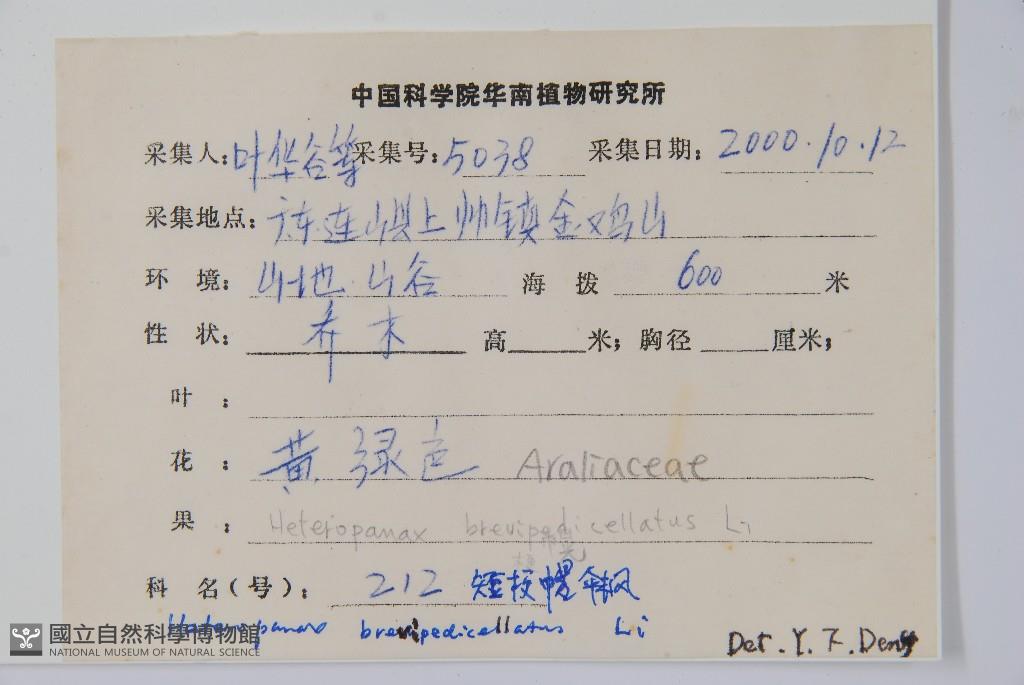 中国科学院华南植物研究所
采集人:叶华谷等 采集号:5038 采集日期:2000.10.12
采集地点:广东连山县上帅镇金鸡山
环 境:山地.山谷 海 拨 600 米
性 状:乔木 高 米; 胸径 厘米;
叶 :
花 :黄绿色 Araliaceae
果 :Heteropanax brevipedicellatus Li
科 名(号):212 短梗幌伞枫
Heteropanax brevipedicellatus Li
Det. Y. F. Deng
國立自然科學博物館
NATIONAL MUSEUM OF NATURAL SCIENCE